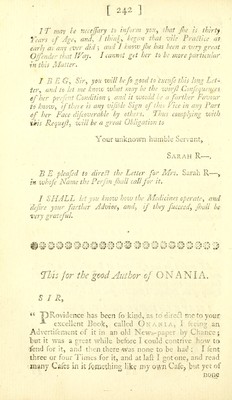 [ 242 ]
IT may be necessary to inform you, that she is thirty
Years of Age, and, I think, began that vile Practice as
early as any ever did; and I know she has been a very great
Offender that Way. I cannot get her to be more particular
in this Matter.
I BEG, Sir, you will be so good to excuse this long Let-
ter, and to let me know what may be the worst Consequences
of her present Condition; and it would be a further Favour
to know, if there is any visible Sign of this Vice in any Part
of her Face discoverable by others. Thus complying with
this Request, will be a great Obligation to
Your unknown humble Servant,
SARAH R—.
BE pleased to direct the Letter for Mrs. Sarah R—,
in whose Name the Person shall call for it.
I SHALL let you know how the Medicines operate, and
desire your further Advice, and, if they succeed, shall be
very grateful.
This for the good Author of ONANIA.
SIR,
“ PRovidence has been so kind, as to direct me to your
excellent Book, called ONANIA, I seeing an
Advertisement of it in an old News-paper by Chance;
but it was a great while before I could contrive how to
send for it, and then there was none to be had: I sent
three or four Times for it, and at last I got one, and read
many Cases in it something like my own Case, but yet of
none